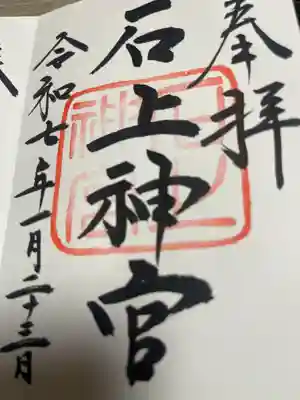 奉拝
石上神宮
令和七年一月二十三日